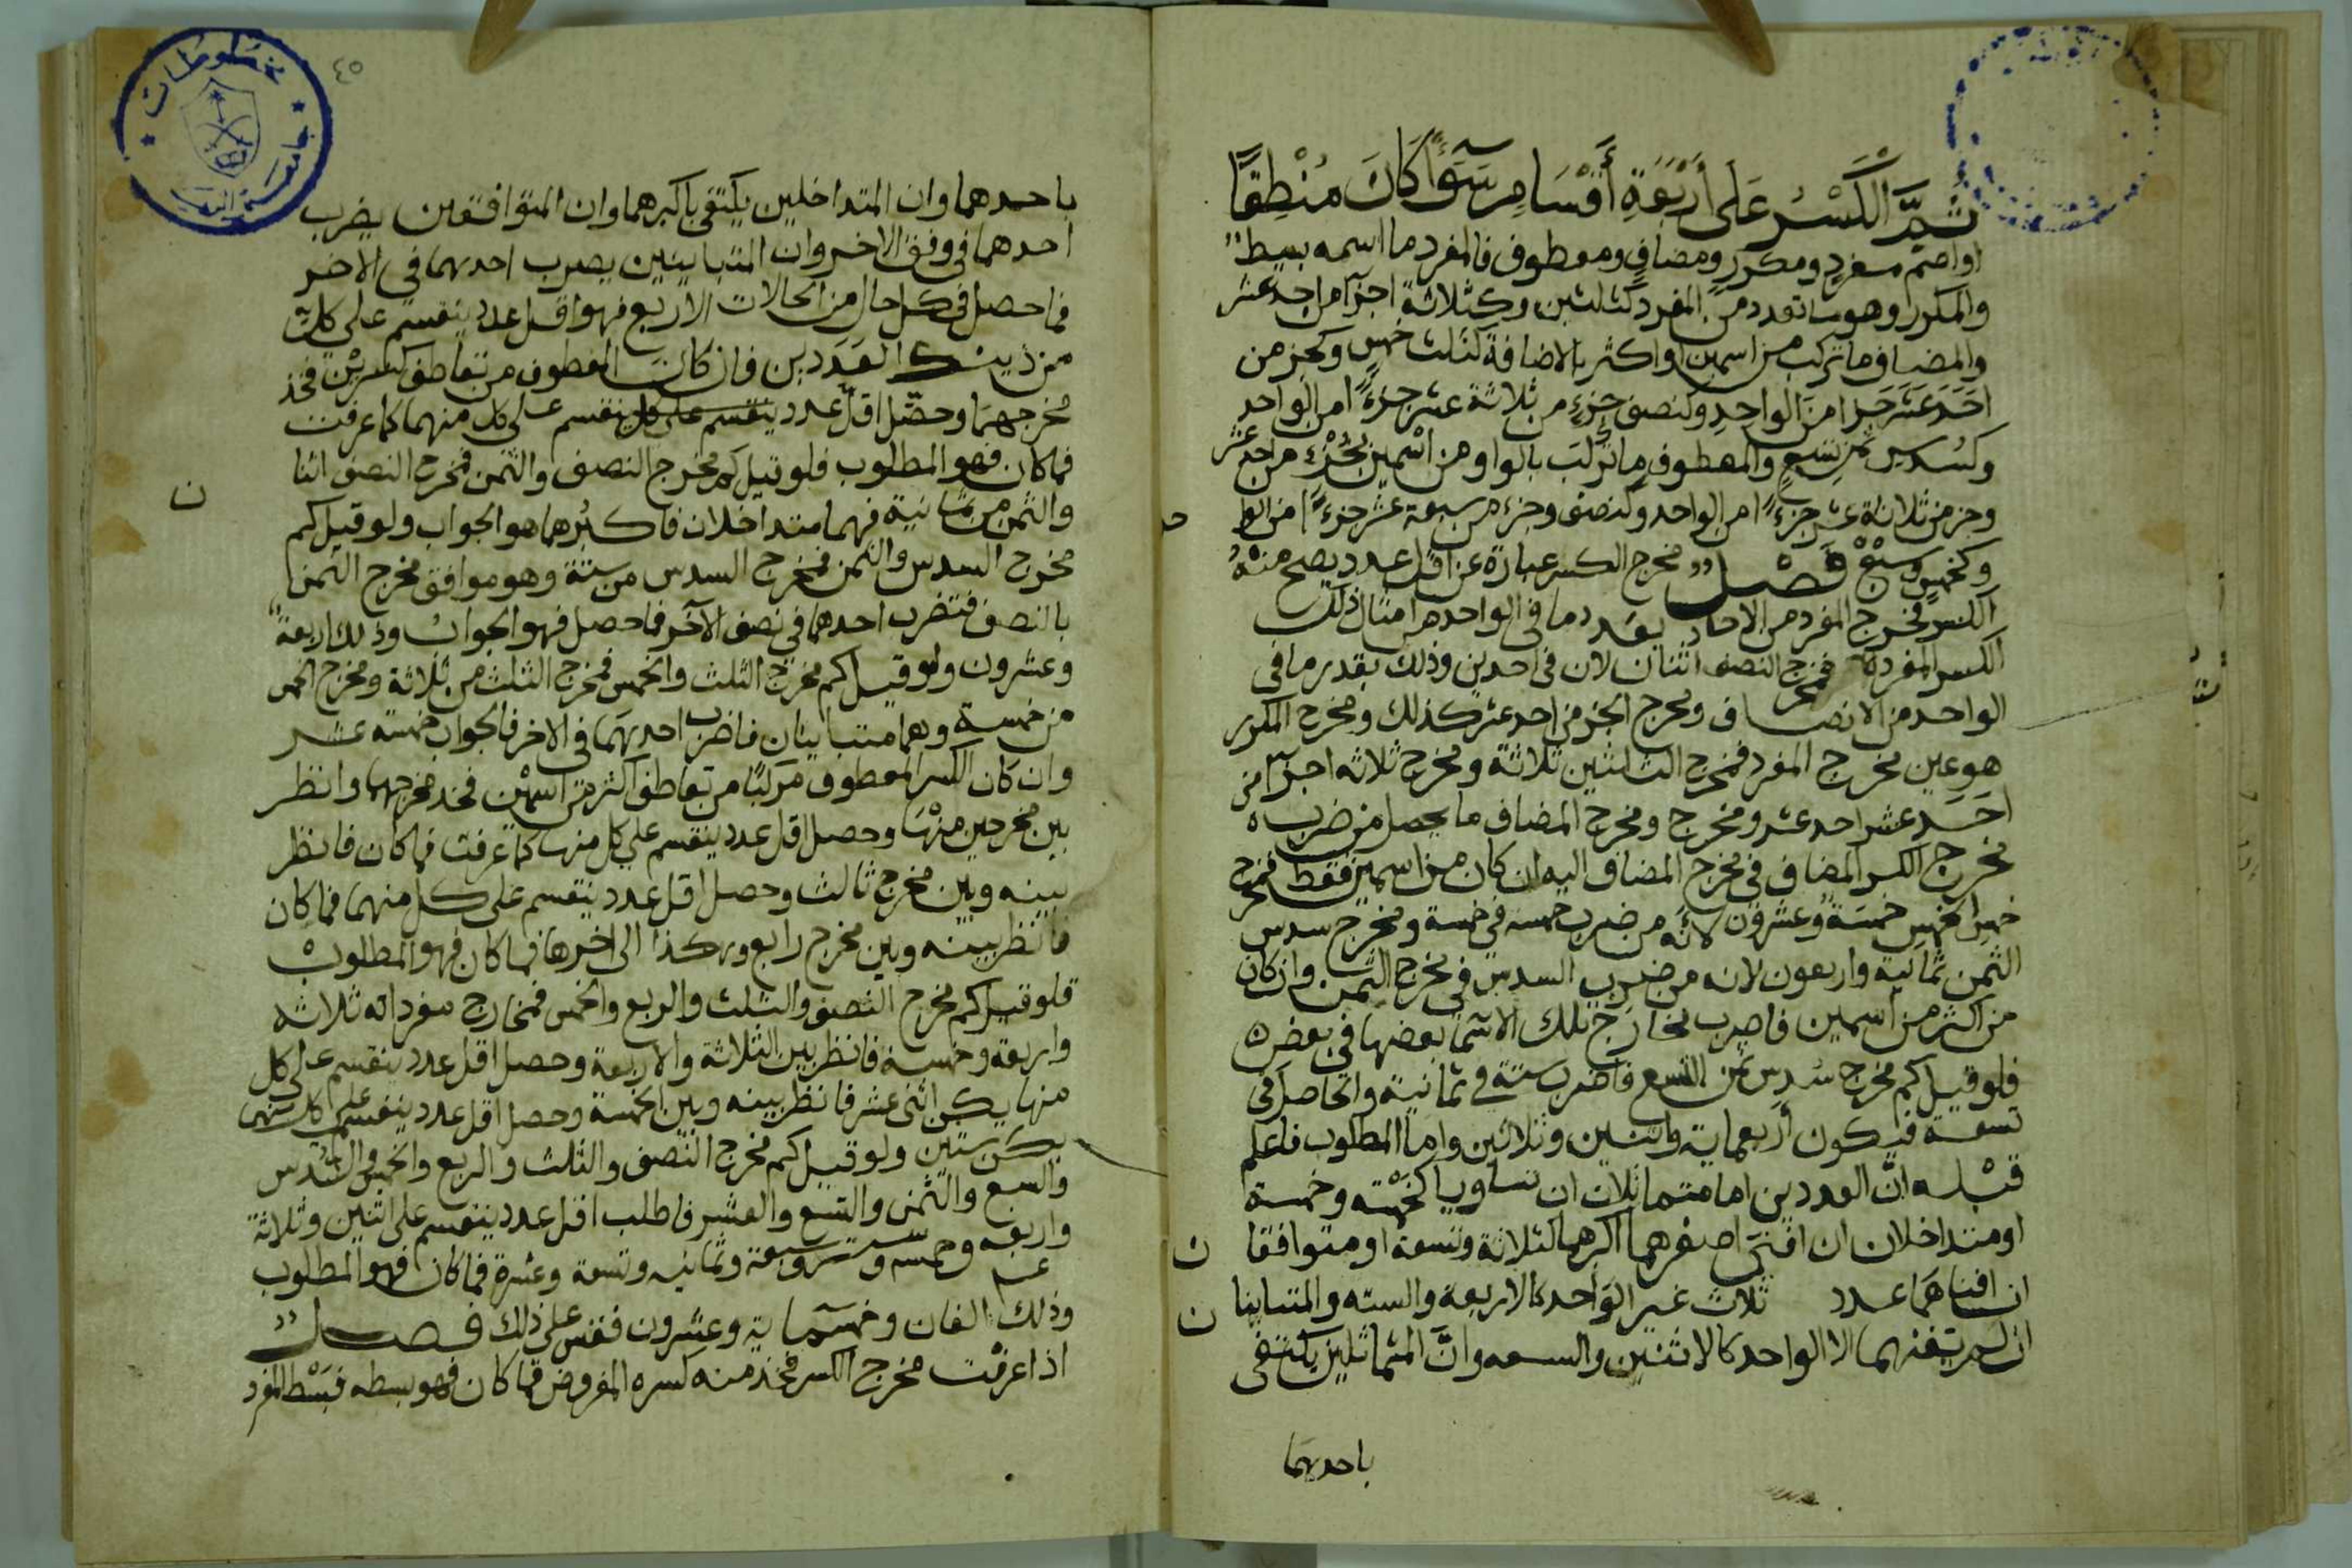 ثم الكسر على أربعة أقسام سوآء كان منطقا
او اصم مفرد ومكرر ومضاف ومعطوف فالمفرد ما اسمه بسيط
والمكرر وهو ما تعدد من المفرد كثلثين وكثلاثة اجزآ من احد عشر
والمضاف ما تركب من اسمين او اكثر بالاضافة كثلث خمس وكجز من
احد عشر جزا من الواحد وكنصف جزء من ثلاثة عشر جزءا من الواحد
وكسدس ثمن تسع والمعطوف ما تركب بالواو من اسمين كجزء من احد عشر
وجز من ثلاثة عشر جزءا من الواحد وكنصف وجزء من سبعة عشر جزءا من
وكخمس وسبع فصل مخرج الكسر عبارة عن اقل عدد يصح منه
الكسر فمخرج المفرد من الاحاد بعدد ما في الواحد من امثال ذلك
الكسر المفرد فمخرج النصف اثنان لان في احدين وذلك بقدر ما في
الواحد من الانصاف ومخرج الجز من احد عشر كذلك ومخرج المكرر
هو عين مخرج المفرد فمخرج الثلثين ثلاثة ومخرج ثلاثه اجزآ من
احد عشر احد عشر ومخرج ومخرج المضاف ما يحصل من ضرب
مخرج الكسر المضاف في مخرج المضاف اليه ان كان من اسمين فقط فمخرج
خمس الخمس خمسة وعشرون لانه من ضرب خمسه في خمسة ومخرج سدس
الثمن ثمانية واربعون لانه من ضرب السدس في مخرج الثمن وان كان
من اكثر من اسمين فاضرب مخارج تلك الاسمآ بعضها في بعض
فلو قيل كم مخرج سدس ثمن التسع فاضرب ستة في ثمانية والحاصل في
تسعة فيكون أربعماية واثنين وثلاثين واما المطلوب فاعلم
قبله ان العددين اما متماثلان ان تساويا كخمسة وخمسة
او متداخلان ان افنى اصغرهما اكبرهما كثلاثة وتسعة او متوافقا ن
ان افناهما عدد ثلاث غير الواحد كالاربعة والسته والمتباينا ن
ان لم يفنهما الا الواحد كالاثنين والسبعه وان المتماثلين يكتفى
باحدهما
٤٥
مخطوطات
جامعة
باحدهما وان المتداخلين يكتفى باكبرهما وان المتوافقين يضرب
احدهما في وفق الاخر وان المتباينين يضرب احدهما في الاخر
فما حصل في كل حال من الحالات الاربع فهو اقل عدد ينقسم على كل
من ذينك العددين فان كان المعطوف من تعاطف كسرين فخذ
مخرجهما وحصل اقل عدد ينقسم على كل ينقسم على كل منهما كما عرفت
فما كان فهو المطلوب فلو قيل كم مخرج النصف والثمن فمخرج النصف اثنا ن
والثمن من ثمانية فهما متداخلان فاكبرهما هو الجواب ولو قيل كم
مخرج السدس والثمن فمخرج السدس من ستة وهو موافق مخرج الثمن
بالنصف فتضرب احدهما في نصف الآخر فما حصل فهو الجواب وذلك اربعة
وعشرون ولو قيل كم مخرج الثلث والخمس فمخرج الثلث من ثلاثة ومخرج الخمس
من خمسة وهما متباينان فاضرب احدهما في الاخر فالجواب خمسه عشر
وان كان الكسر المعطوف مركبا من تعاطف اكثر من اسمين فخذ مخرجها وانظر
بين مخرجين منها وحصل اقل عدد ينقسم على كل منها كما عرفت فما كان فانظر
بينه وبين مخرج ثالث وحصل اقل عدد ينقسم على كل منهما فما كان
فانظر بينه وبين مخرج رابع وهكذا الى اخرها فما كان فهو المطلوب
فلو قيل كم مخرج النصف والثلث والربع والخمس فمخارج مفرداته ثلاثه
واربعة وخمسة فانظر بين الثلاثة والاربعة وحصل اقل عدد ينقسم على كل
منها يكن اثنى عشر فانظر بينه وبين الخمسة وحصل اقل عدد ينقسم على كل منهما
يكن ستين ولو قيل كم مخرج النصف والثلث والربع والخمس والسدس
والسبع والثمن والتسع والعشر فاطلب اقل عدد ينقسم على اثنين وثلاثة
واربعه وخمسه وستة وسبعة وثمانيه وتسعة وعشرة فما كان فهو المطلوب
وذلك الفان وخمسماية وعشرون فقس على ذلك فصل
اذا عرفت مخرج الكسر فخذ منه كسره المفروض فما كان فهو بسطه فبسط المفرد